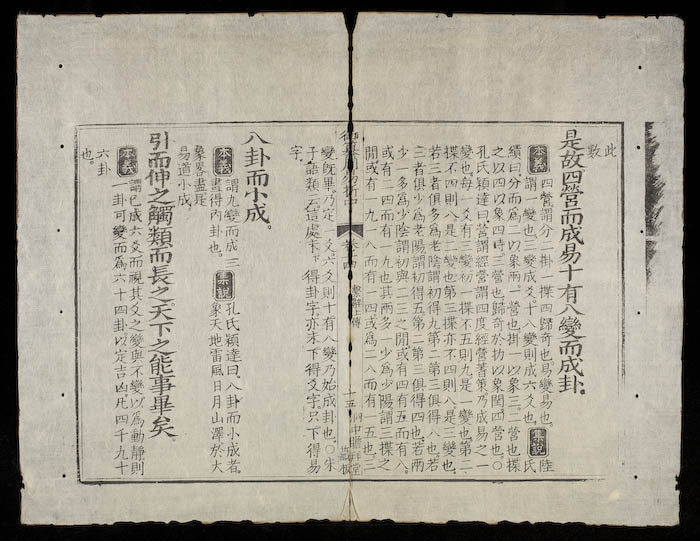 此
數
是故四營而成易十有八變而成卦。
本義 四營謂分二掛一揲四歸奇也。易變易也。
謂一變也。三變成爻。十八變則成六爻也。
集說 陸氏
績曰分而爲二以象兩。一營也掛一以象三二營也揲
之以四以象四時三營也歸奇於扐以象閏四營也。○
孔氏穎達曰營謂經營謂四度經營蓍策乃成易之一
變也每一爻有三變初一揲不五則九是一變也第二
揲不四則八是二變也第三揲亦不四則八是三變也。
若三者俱多爲老陰謂初得九第二第三俱得八也。若
三者俱少爲老陽謂初得五第二第三俱得四也。若兩
少一多爲少陰謂初與二三之間或有四或有五而有八。
或有二四而有一九也其兩多一少爲少陽謂三揲之
間或有一九一八而有一四或爲二八而有一五也。三
御纂周易折中 卷十四 繫辭上傳 十五
變旣畢乃定一爻六爻則十有八變乃始成卦也。○朱
子語類云這處未下得卦字亦未下得爻字。只下得易
字。
八卦而小成。
本義 謂九變而成三
畫得內卦也。
集說 孔氏穎達曰。八卦而小成者。
象天地雷風日月山澤於大
象畧盡是
易道小成。
引而伸之觸類而長之。天下之能事畢矣。
本義 謂已成六爻而視其爻之變與不變以爲動靜則
一卦可變而爲六十四卦以定吉凶凡四千九十
六卦
也。